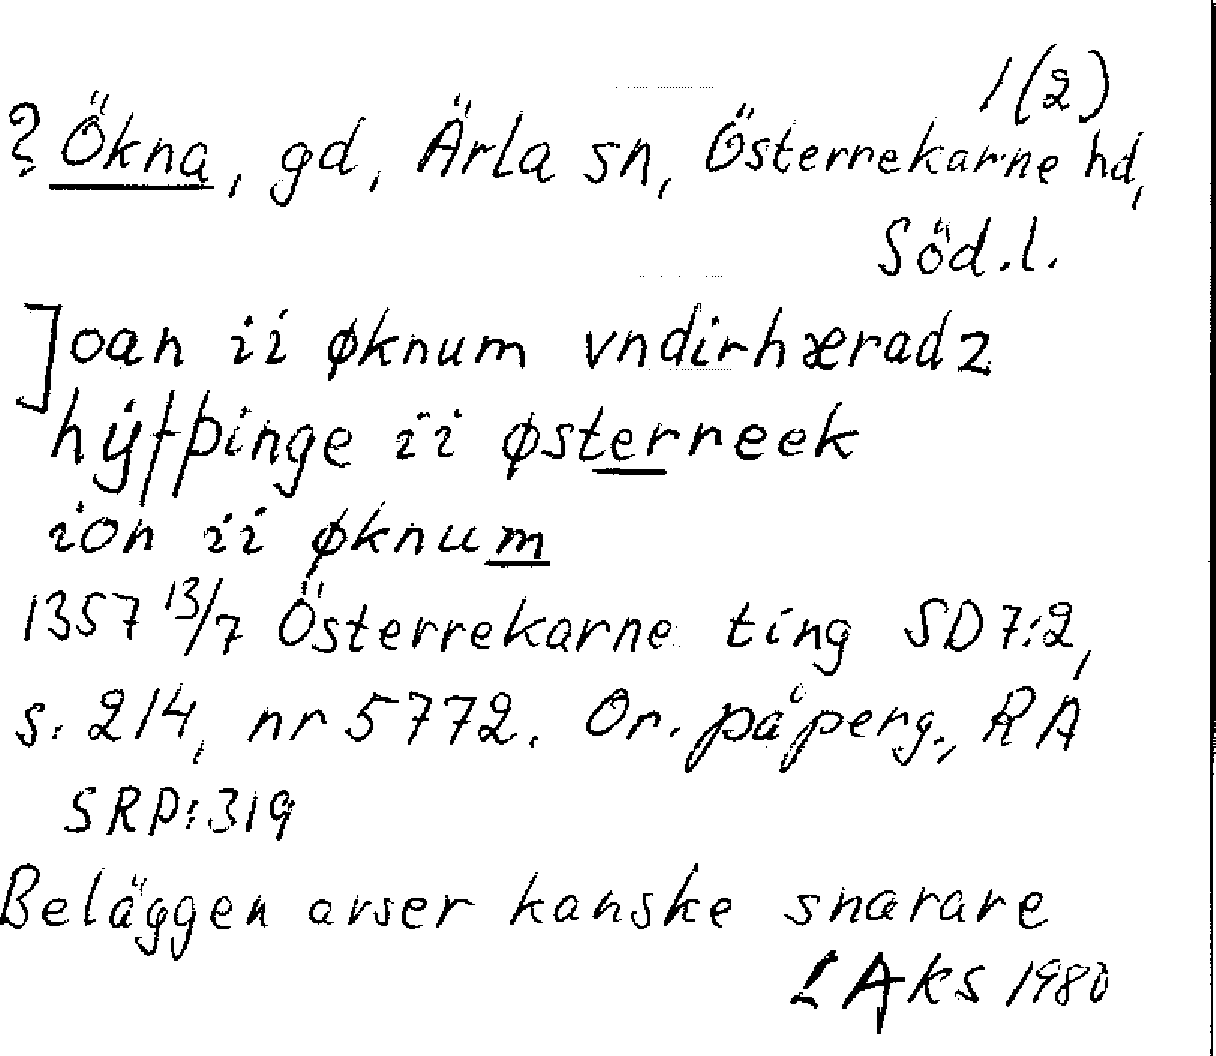 1(2)
? Ökna, gd, Ärla sn, Österrekarne hd,
Söd.l.
Joan ii øknum vndirhæradz
hyfþinge ii østerreek
ion ii øknum
1357 13/7 Österrekarne ting SD 7:2,
s. 214, nr 5772. Or. på perg., RA
SRP: 319
Beläggen avser kanske snarare
LAks 1980